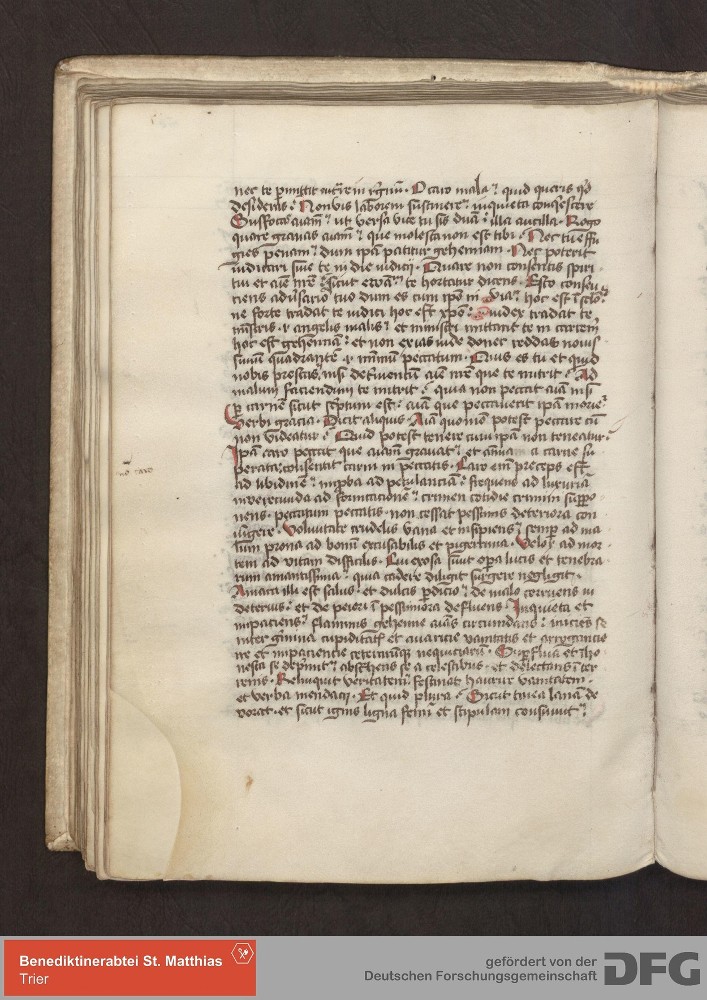 nec te pmittit intrare in regnum. O caro mala quid queris qd
desideras Non vis laborem sustinere inquieta conquescere
Suffocas aiam ut versa vice tu sis dna illa ancilla. Rogo
quare gravas aiam que molesta non est tibi. Nec tu effu
gies penam dum ipa patitur gehennam. Nec poterit
iudicari sine te in die iudicii. Quare non consentis spiri
tui et aie sicut te hortatur dicens. Esto consen
ciens adversario tuo dum es cum ipo in via hoc est
ne forte tradat te iudici hoc est xpo. Iudex tradat te
ministris angelis malis et ministri mittant te in carcerem
hoc est gehennam et non exias inde donec reddas novis
simum quadrantem minimum peccatum. Quis es tu et quid
nobis prestas nisi que te nutrit. Ad
malum faciendum te nutrit quia non peccat aia nisi
p carne sicut scptum est aia que peccaverit ipa morie
Verbi gracia. Dicit aliquis. Aia quomodo potest peccare cu
non videatur Quid potest tenere cum ipa non teneatur
Ipa caro peccat que aiam gravat et a carne su
perata consentit carni in peccatis. Caro eim preceps est
ad libidine improba ad petulanciam frequens ad luxuria
inverecunda ad fornicacione crimen cotidie crimini suppo
nens. peccatum peccatis. non cessat pessimis deteriora con
iungere. Voluntate crudelis vana et insipiens semp ad ma
lum prona ad bonum excusabilis et pigerrima. Velox ad mor
tem ad vitam difficilis. Cui exosa sunt opa lucis et tenebra
rum amantissima quia cadere diligit surgere negligit.
Amara illi est salus et dulcis pdicio de malo corruens in
deterius et de peiori i pessimora defluens. Inquieta et
impaciens flammis gehenne aias circumdans iniciens se
inter gmina cupiditatis et avaricie vanitatis et arrogancie
ire et impaciencie ceterarumque nequiciarum. Superflua et iho
nesta se deprimit abstrahens se a celestibus. et delectans i ter
renis. Relinquit veritatem festinat haurire vanitatem.
et verba mendacii. Et quid plura Sicut tinea lanam de
vorat. et sicut ignis ligna fenum et stipulam consumit